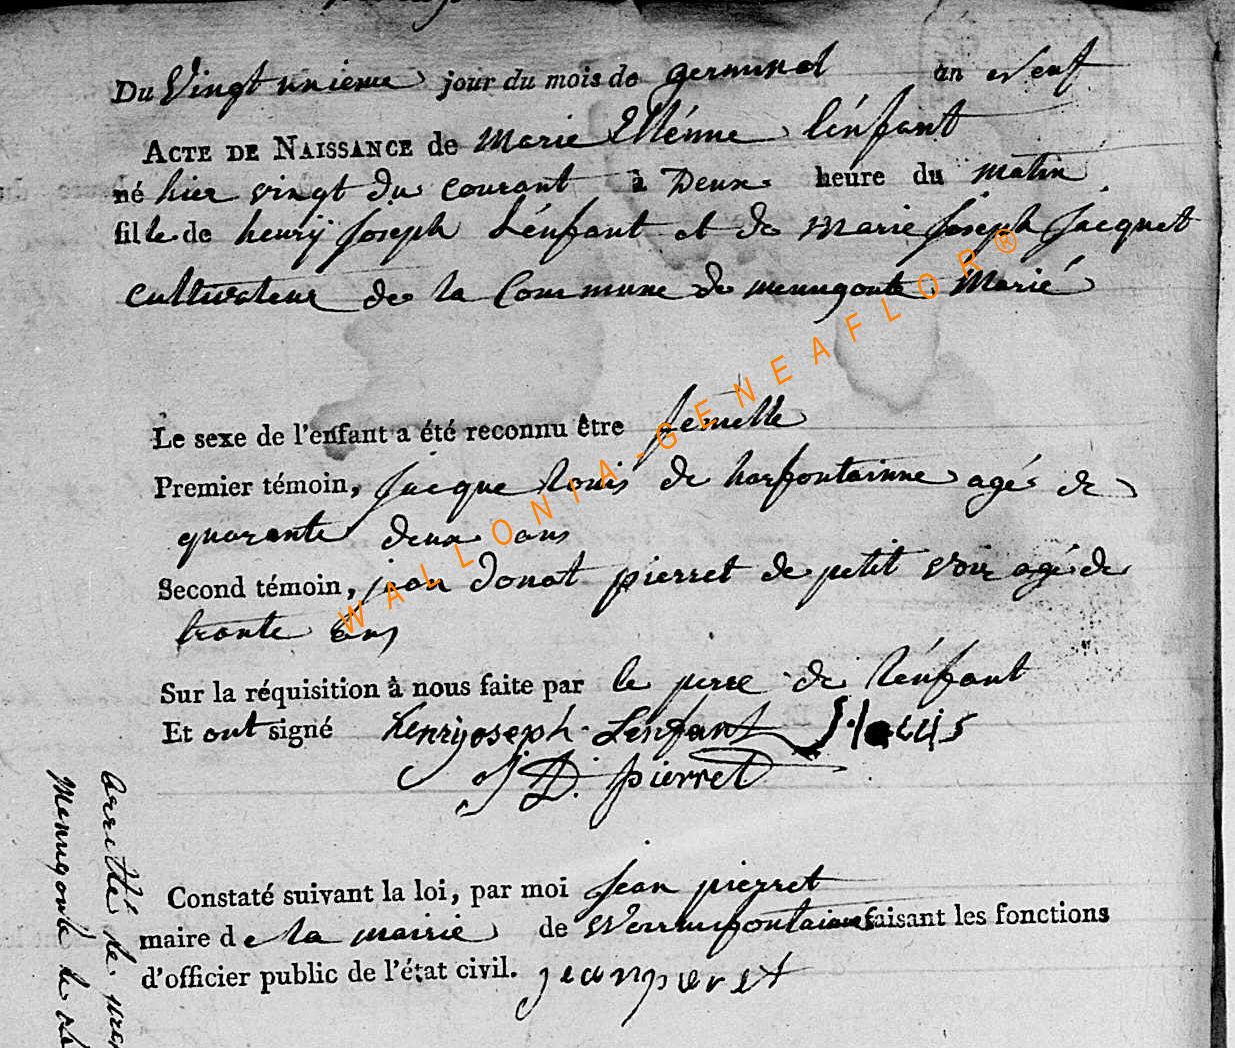 Du Vingt unieme jour du mois de germinal an Neuf
ACTE DE NAISSANCE de marie Etiénne lénfant
né hier vingt du courant à Deux heure du matin
fille de henrÿ Joseph Lénfant et de marie Joseph Jacquet
cultivateur de la Commune de menugoute Marié
Le sexe de l'enfant a été reconnu être femelle
Premier témoin, Jacque Louis de harfontainne agé de
quarante deux ans
Second témoin, jean donat pierret de petit voir agé de
trante ans
Sur la réquisition à nous faite par le perre de lénfant
Et ont signé henryjoseph Lenfant
J D. pierret
Constaté suivant la loi, par moi Jean pierret
maire de la mairie de faisant les fonctions
d'officier public de l'état civil. jean pieret
arretté le
Menugoute le
WALLONIA-GENEAFLOR®